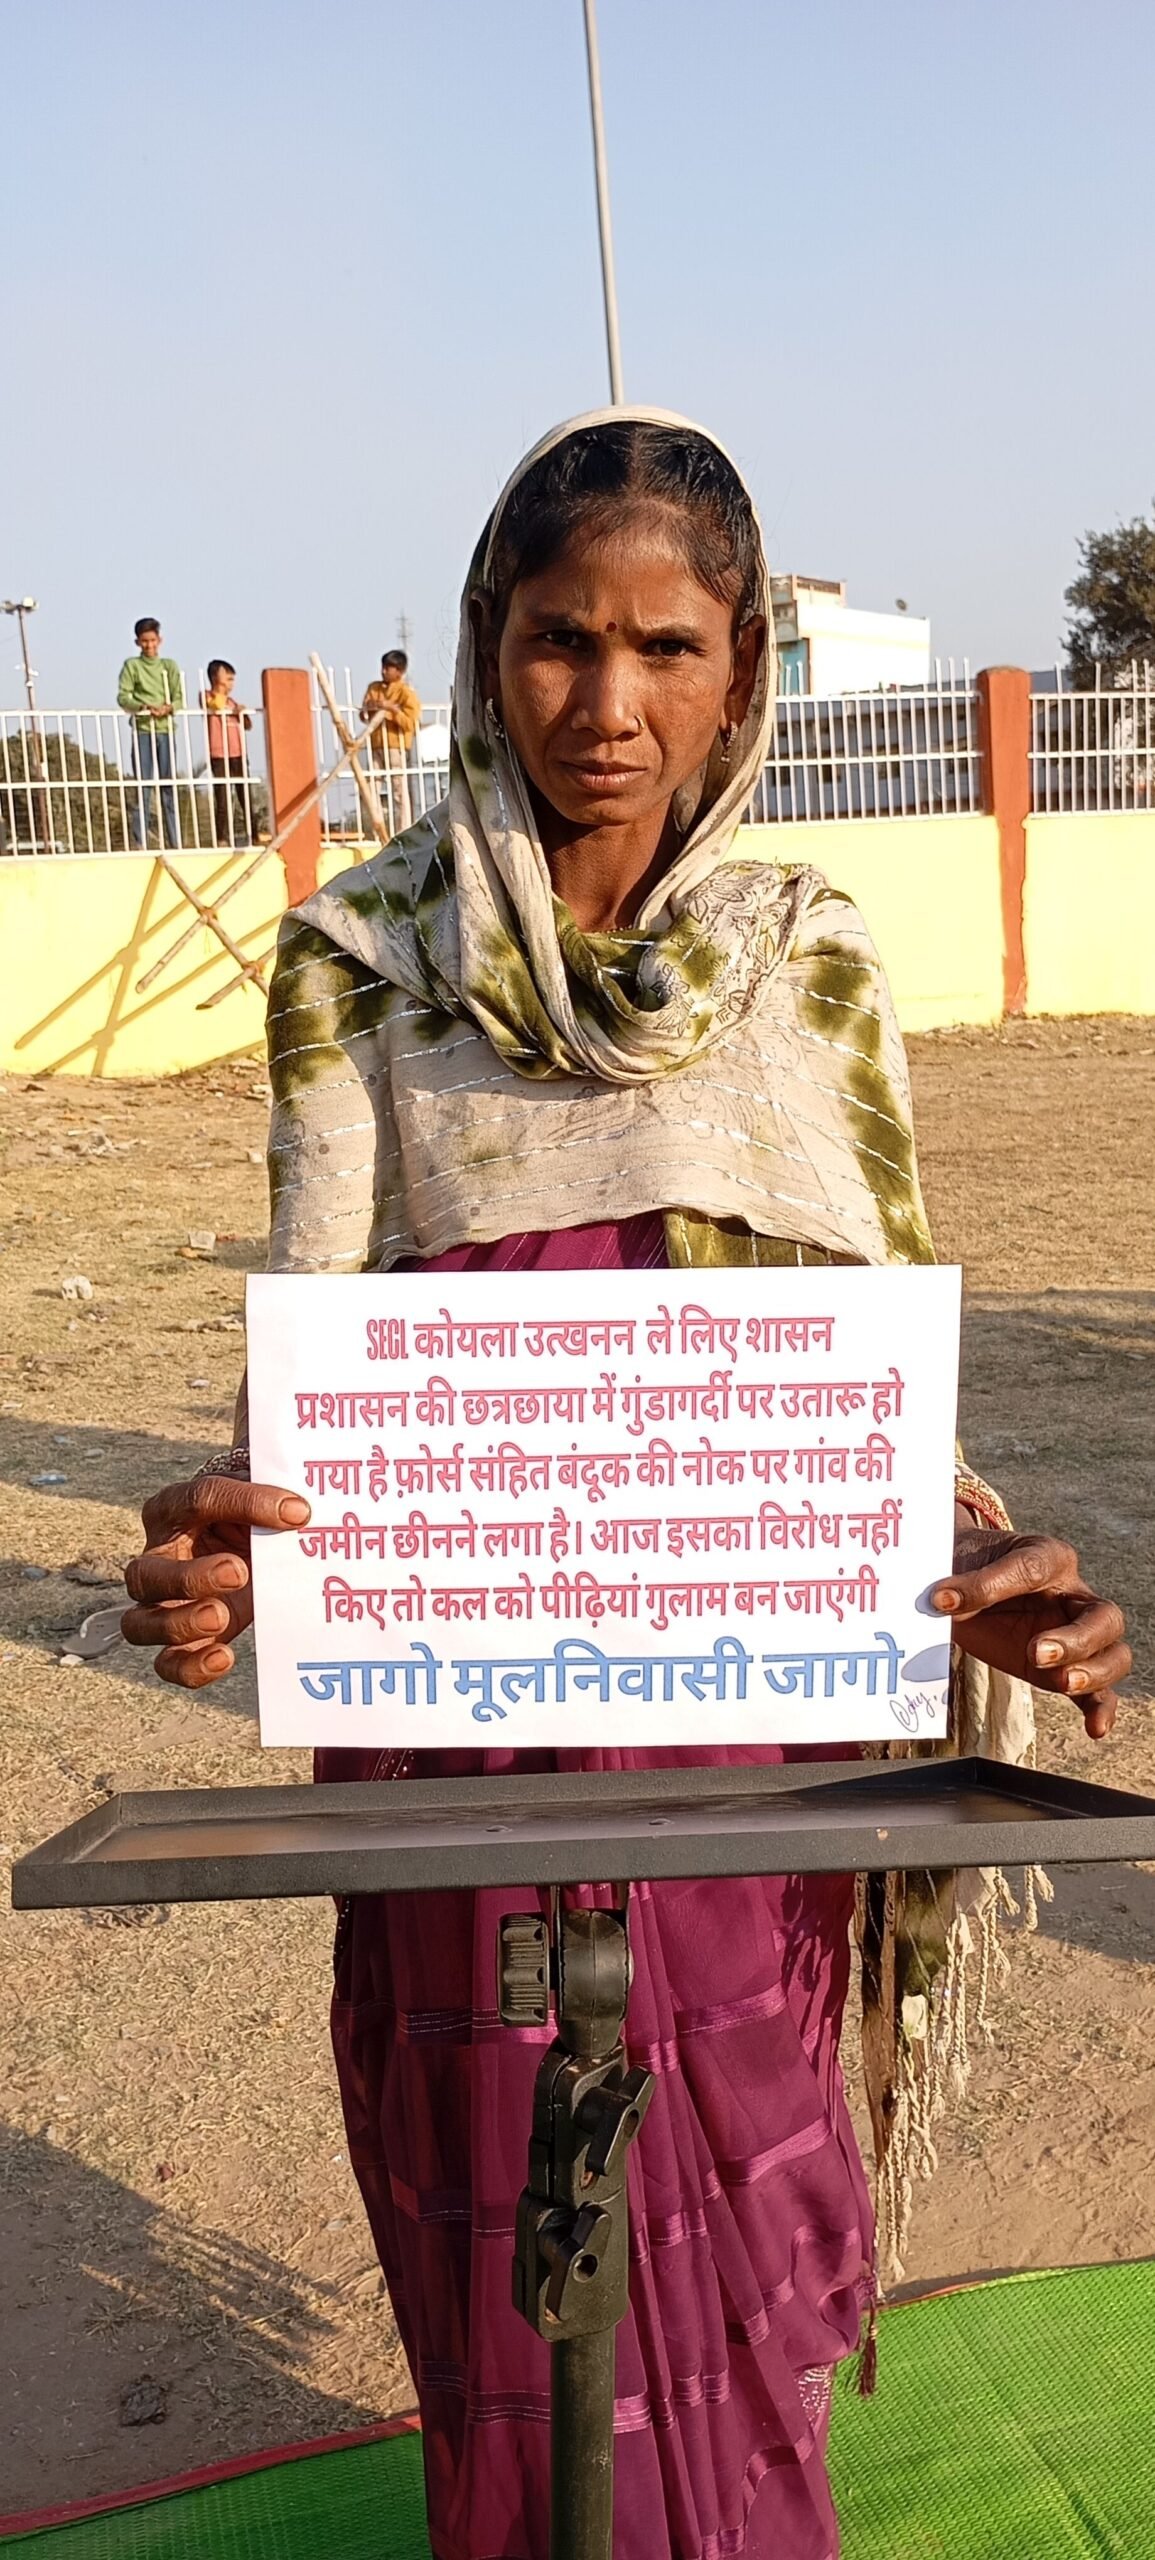 SECL कोयला उत्खनन ले लिए शासन
प्रशासन की छत्रछाया में गुंडागर्दी पर उतारू हो
गया है फ़ोर्स संहित बंदूक की नोक पर गांव की
जमीन छीनने लगा है। आज इसका विरोध नहीं
किए तो कल को पीढ़ियां गुलाम बन जाएंगी
जागो मूलनिवासी जागो